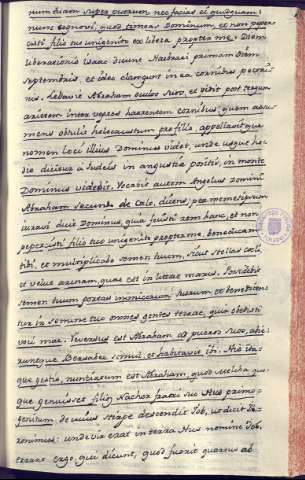 num tuam super puerum nec facias ei quidquam:
nunc cognovi, quod timeas Dominum, et non peper
cisti filio tuo unigenito ex libera propter me. Diem
liberationis Isaac dicunt Hæbraei primam diem
septembris, et ideo clangunt in ea cornibus pecori
nis. Levavit Abraham oculos suos, et vidit post tergum
arietem inter vepres haerentem cornibus, quem adsu
mens obtulit holocaustum pro filio, appellavitque
nomen loci illius Dominus videt, unde usque ho
die dicitur a Iudeis in angustia positis, in monte
Dominus videbit. Vocavit autem Angelus Domini
Abraham secundo de Celo, dicens, per memetipsum
iuravi dicit Dominus, quia fecisti rem hanc, et non
pepercisti filio tuo unigenito propter me, benedicam
tibi, et multiplicabo semen tuum, sicut stellas caeli,
et velut arenam, quae est in littore maris. Possidebit
semen tuum portas inimicorum suorum et benedicen
tur in semine tuo omnes gentes terrae, quia obedisti
voci meae. Reversus est Abraham ad pueros suos, abie
runtque Bersabee simul, et habitavit ibi. His ita
que gestis, nuntiatum est Abraham, quod Melcha quo
que genuisset filios Nachor fratri suo Hus primo
genitum, de cuius stirpe descendit Iob, ut dicit Ie
ronimus: unde vir erat in terra Hus nomine Iob.
errant ergo qui dicunt, quod fuerit quartus ab